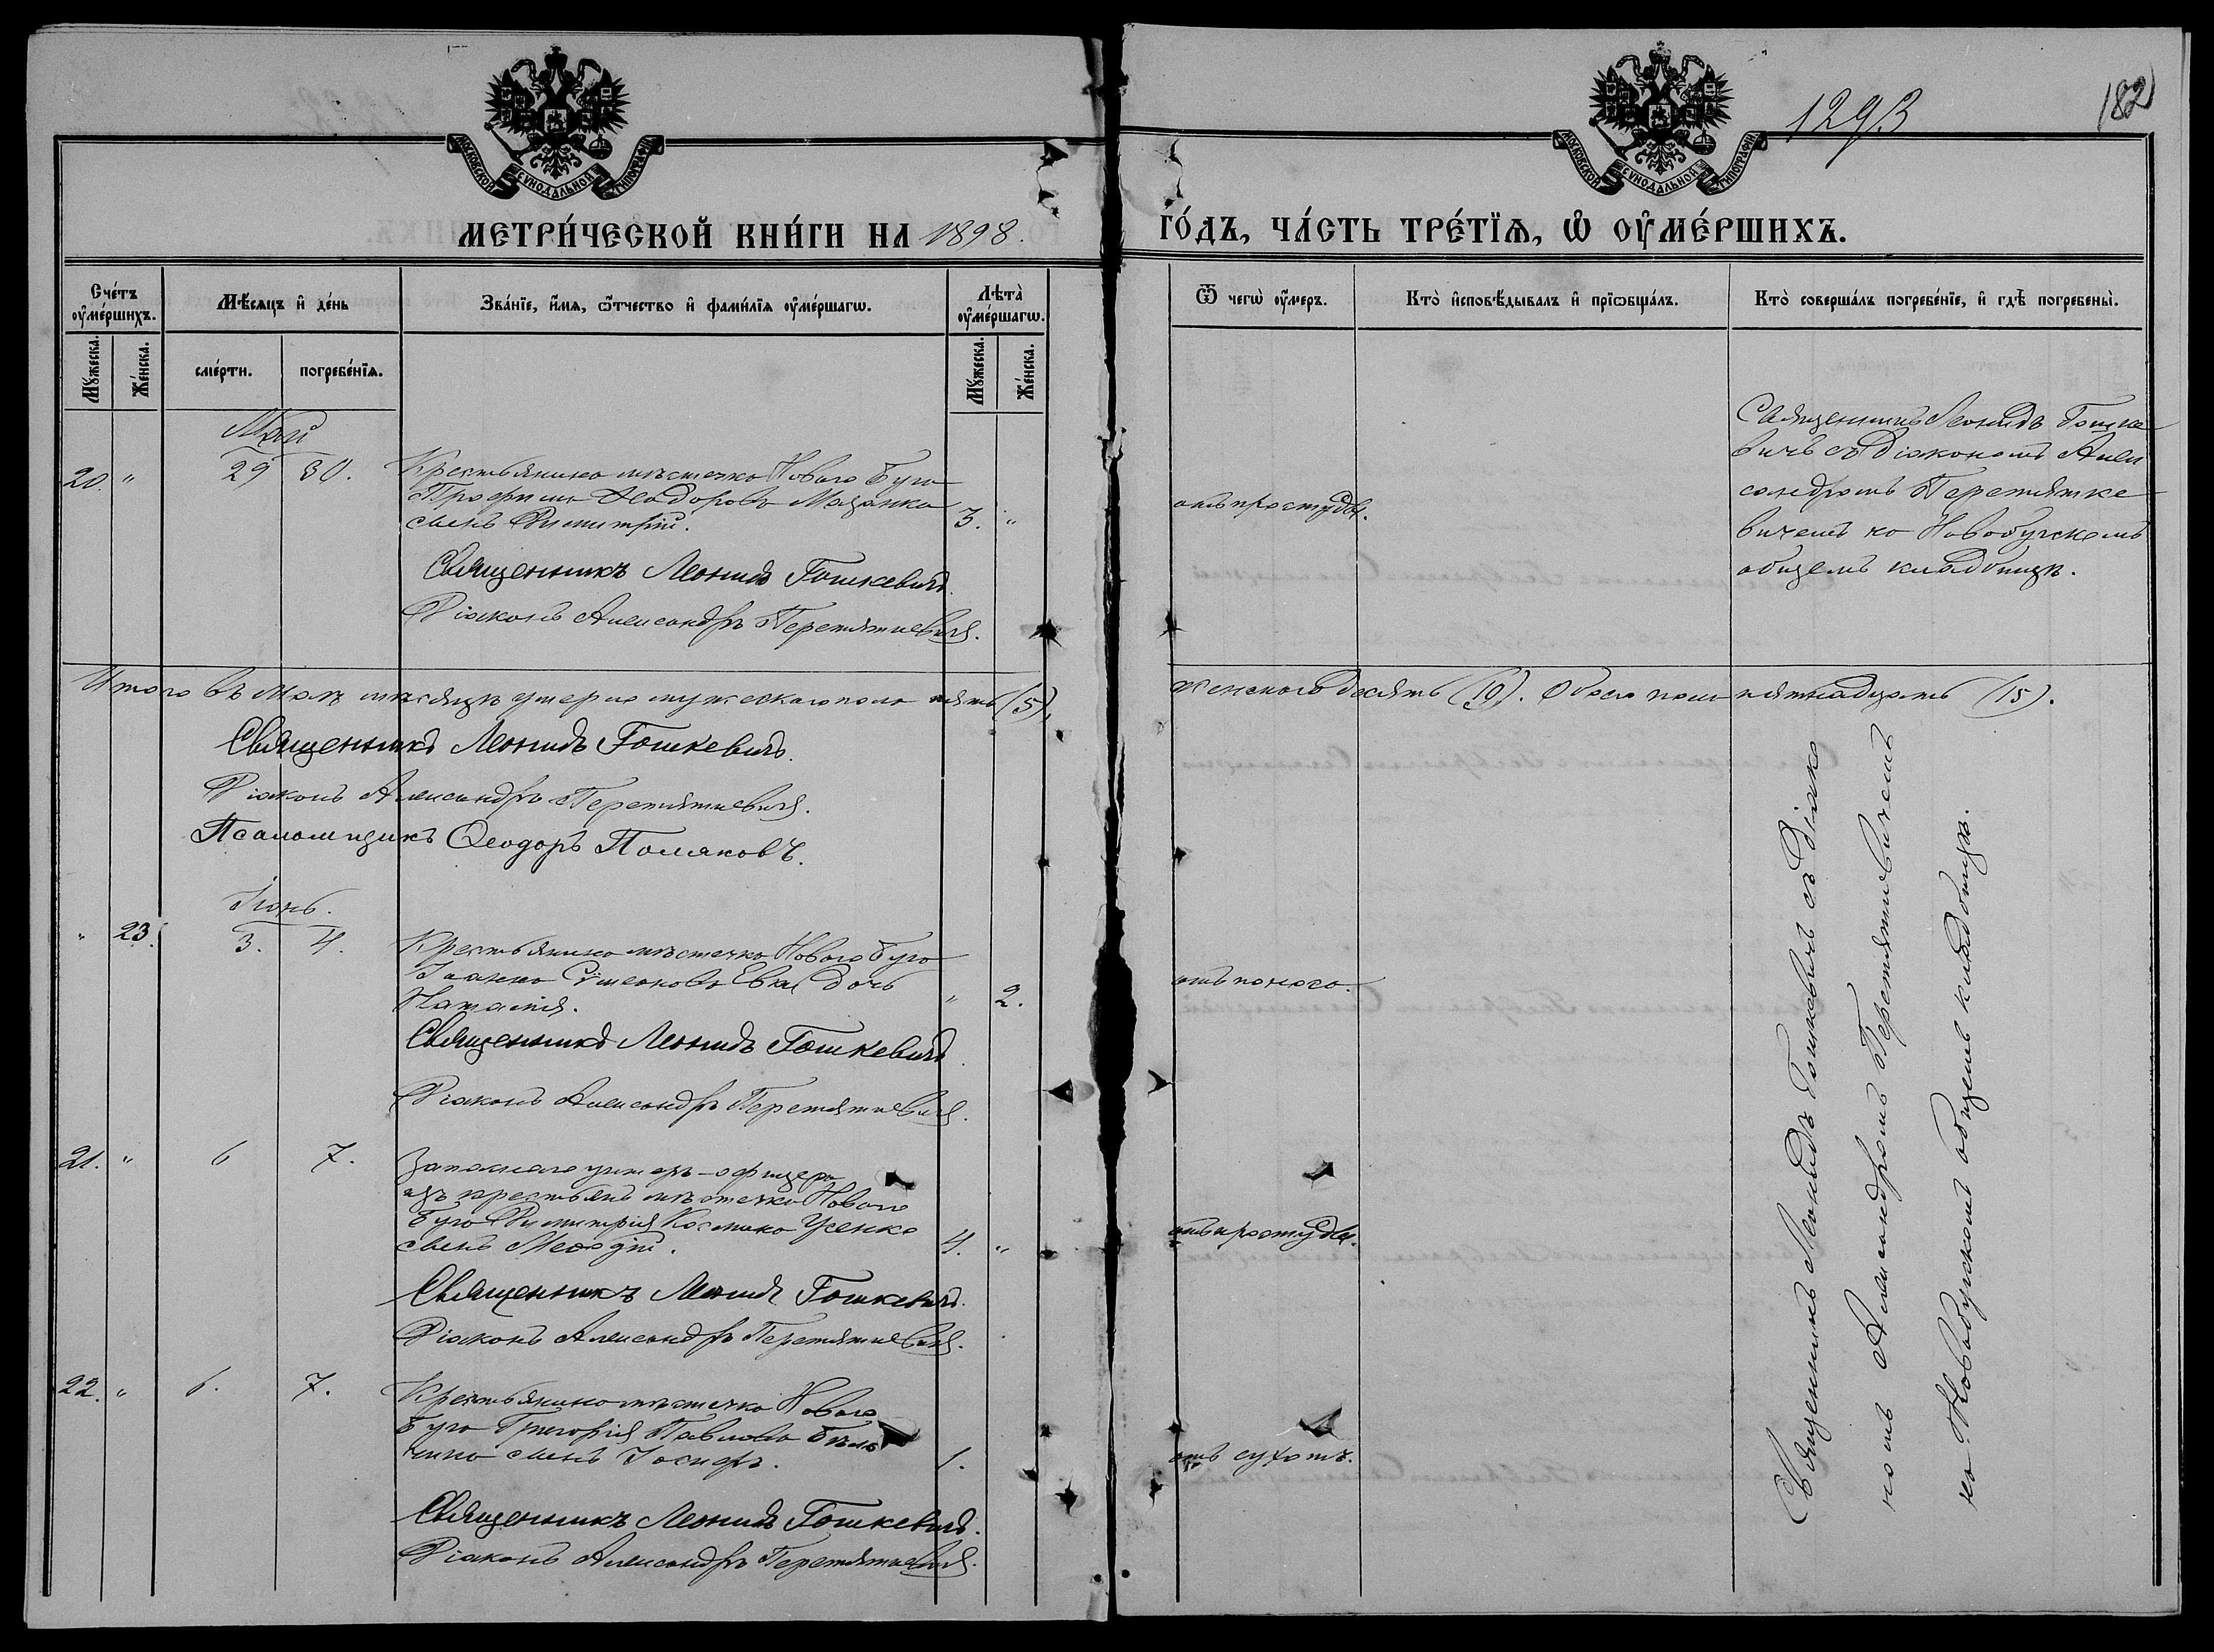 МОСКОВСКОЙ СѴНОДАЛЬНОЙ ТИПОГРАФІИ
МОСКОВСКОЙ СѴНОДАЛЬНОЙ ТИПОГРАФІИ
1293
182
МЕТРИ́ЧЕСКОЙ КНИ́ГИ НА 1898.
ГО́ДЪ, ЧА́СТЬ ТРЕ́ТЇѦ, Ѡ҆ ОУ҆МЕ́РШИХЪ.
Сче́тъ оу҆ме́ршихъ.
Мѣ́сѧцъ и҆ де́нь
Зва́нїе, и҆́мѧ, ѻ҆́тчество и҆ фами́лїѧ оу҆ме́ршагѡ.
Лѣта̀ оу҆ме́ршагѡ.
Ѿ чегѡ̀ оу҆́меръ.
Кто̀ и҆сповѣ́дывалъ и҆ прїѡбща́лъ.
Кто̀ соверша́лъ погребе́нїе, и҆ гдѣ̀ погребены̀.
Мꙋ́жеска.
Же́нска.
сме́рти.
погребе́нїѧ.
Мꙋ́жеска.
Же́нска.
Май
20. " 29 30.
Крестьянина мѣстечка Новаго Буга
Прокрпія Ѳеодорова Мазанка
сынъ Димитрій. 3. "
отъ простуды.
Священникъ Леонидъ Гошке
вичъ съ Діакономъ Алек
сандромъ Перетятке
вичемъ на Новобугскомъ
общемъ кладбищѣ.
Священникъ Леонидъ Гошкевичъ.
Діаконъ Александръ Перетяткевичъ.
Итого въ маѣ мѣсяцѣ умерло мужескаго пола пять (5),
женскаго десять (10). Обоего пола пятнадцать (15).
Священникъ Леонидъ Гошкевичъ.
Діаконъ Александръ Перетяткевичъ.
Псаломщикъ Ѳеодоръ Поляковъ.
Іюнь.
" 23. 3. 4.
Крестьянина мѣстечка Новаго Буга
Іоанна Симеонова дочь
Наталія. " 2.
отъ поноса.
Священникъ Леонидъ Гошкевичъ.
Діаконъ Александръ Перетяткевичъ.
21. " 6 7.
Запаснаго унтеръ-офицера
изъ крестьянъ мѣстечка Новаго
Буга Димитрія Космина Усенка
сынъ Меѳодій. 4. "
отъ простуды.
Священникъ Леонидъ Гошкевичъ.
Діаконъ Александръ Перетяткевичъ.
22. " 6. 7.
Крестьянина мѣстечка Новаго
Буга Григорія Павлова
сынъ Іосифъ. 1.
отъ сухотъ.
Священникъ Леонидъ Гошкевичъ.
Діаконъ Александръ Перетяткевичъ.
Священникъ Леонидъ Гошкевичъ съ Діако
номъ Александромъ Перетяткевичемъ
на Новобугскомъ общемъ кладбищѣ.